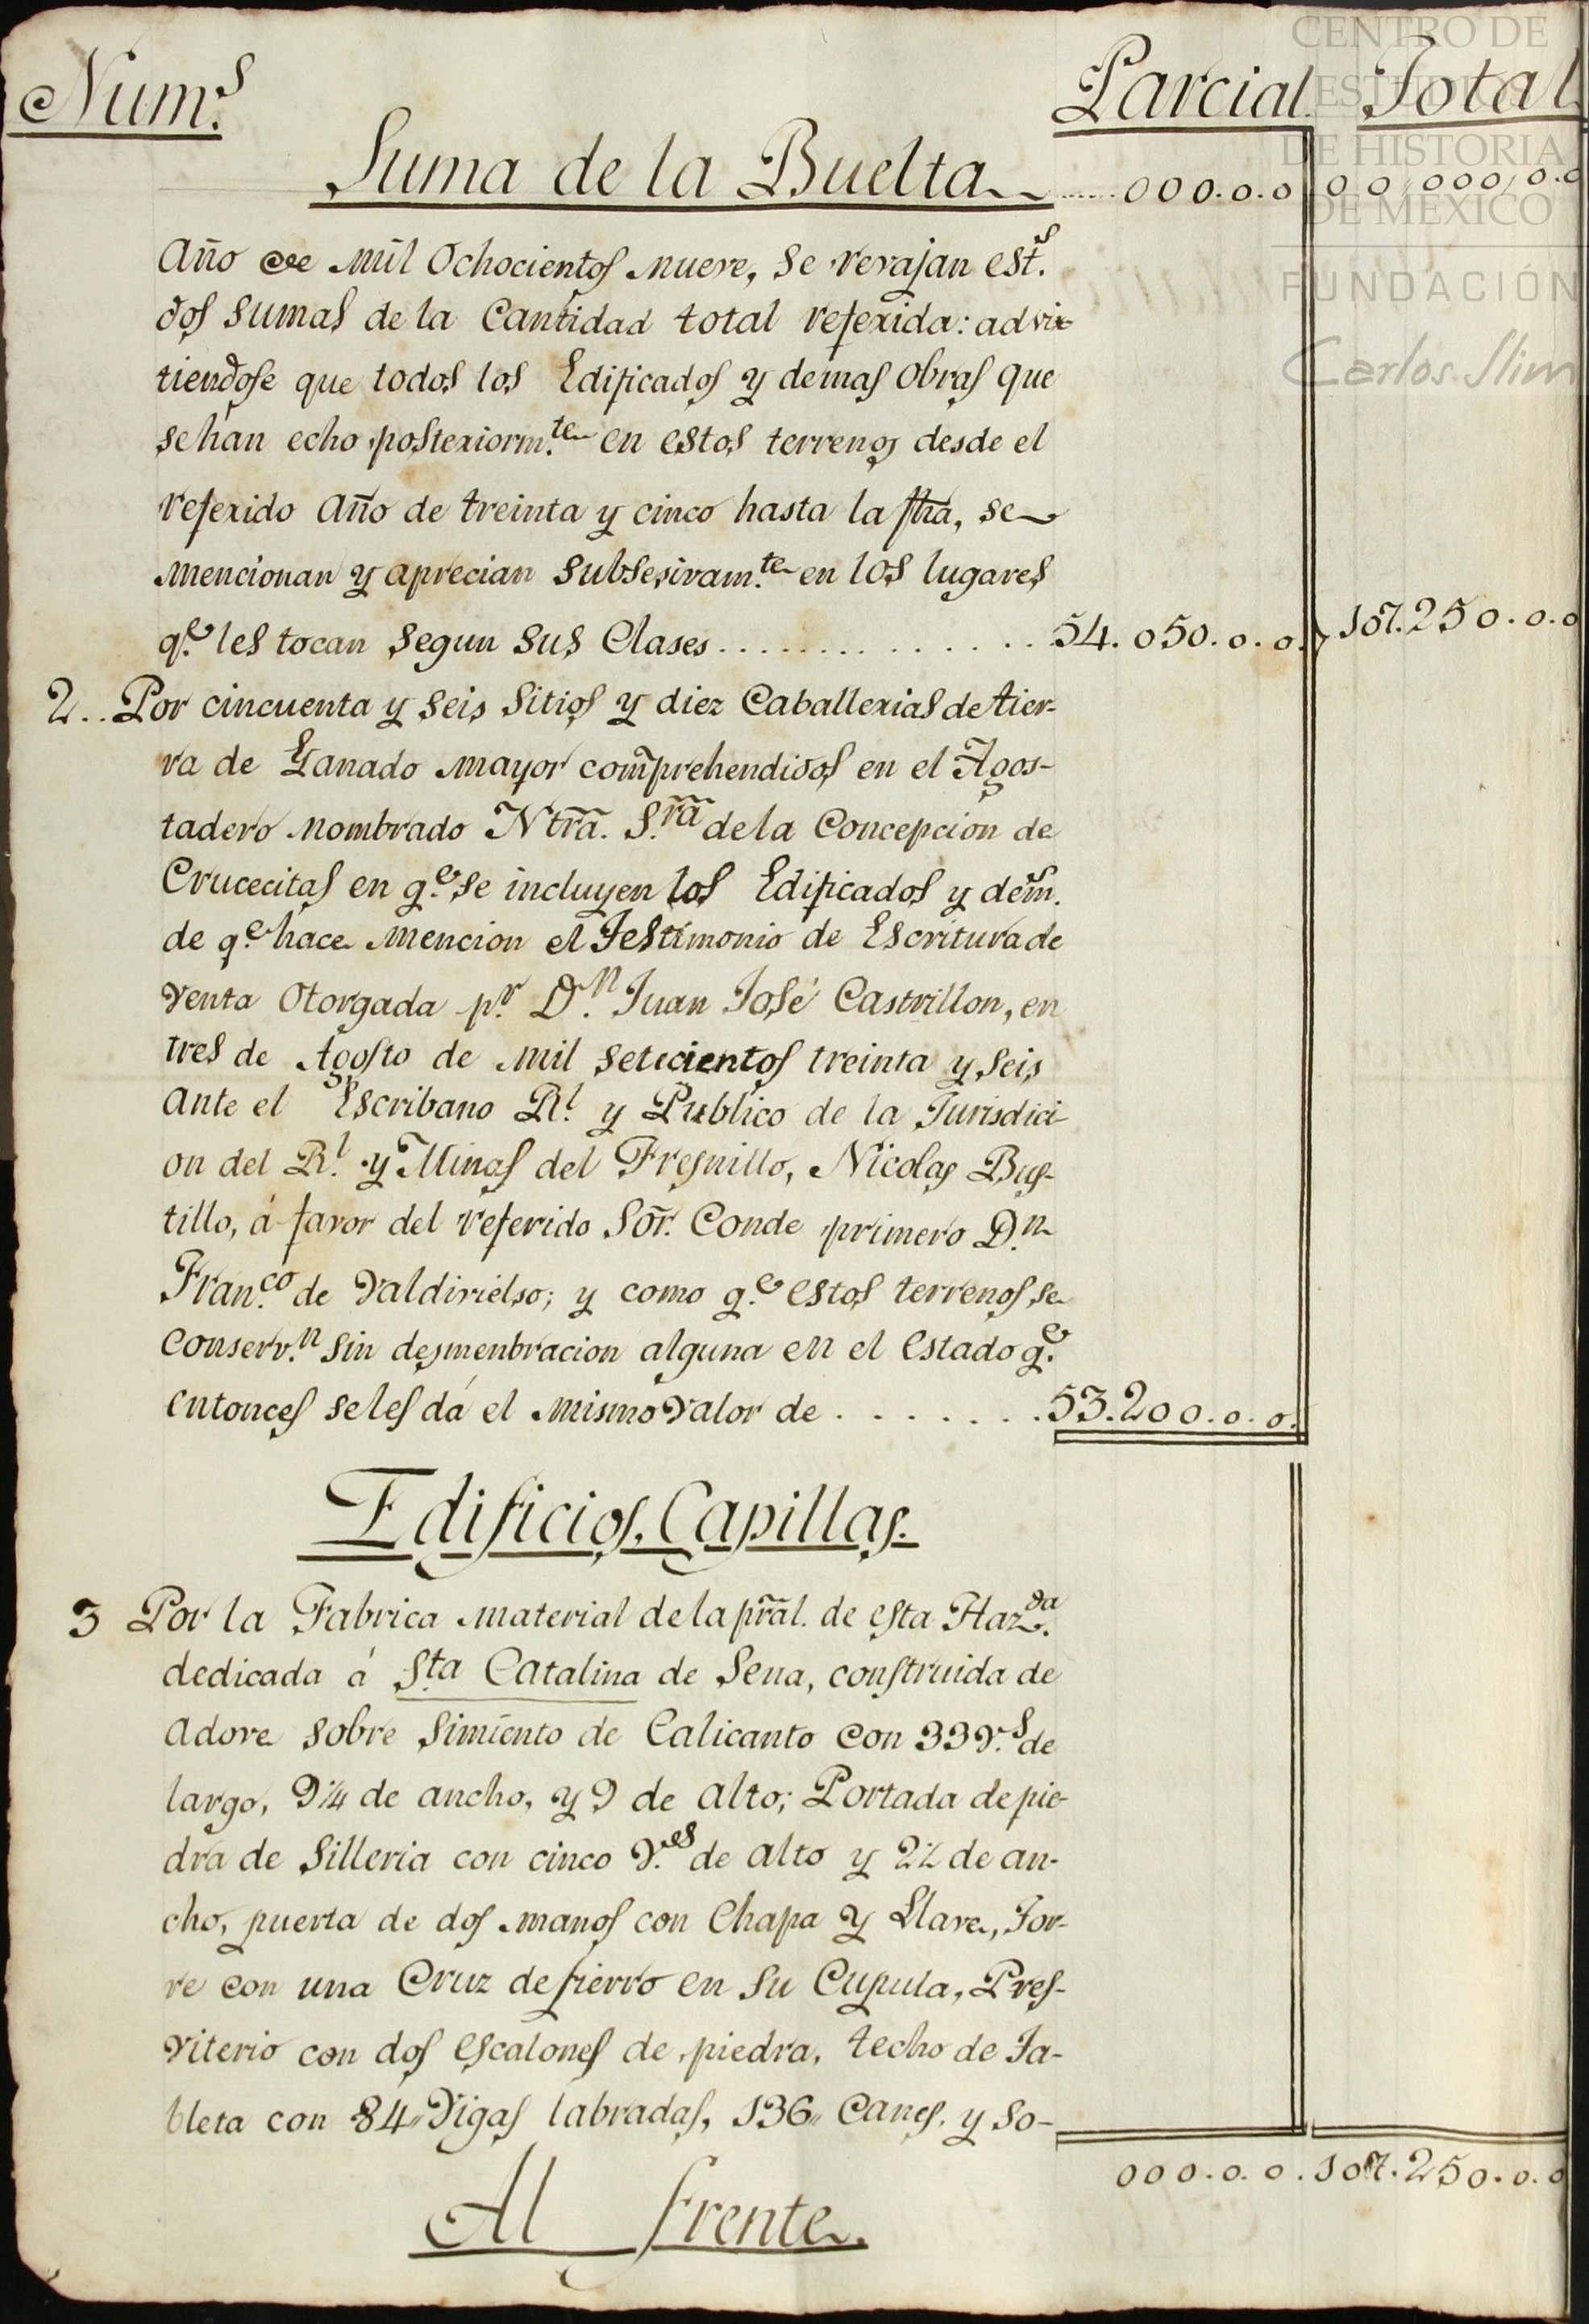 Num.s Parcial. Total.
Suma de la Buelta ..... 000.0.0 00,000,0.0
Año de mil Ochocientos nueve, se revajan est.s
dos sumas de la Cantidad total referida: advir-
tiendose que todos los Edificados y demas obras que
se han echo posteriorm.te en estos terrenos desde el
referido año de treinta y cinco hasta la fha, se
mencionan y aprecian subsesivam.te en los lugares
q.e les tocan segun sus Clases . . . . . . . . . . . . . . 54.050.0.0. 107.250.0.0
2.. Por cincuenta y seis Sitios y diez Caballerias de tier-
ra de Ganado mayor comprehendidos en el Agos-
tadero nombrado Ntra. S.ra de la Concepcion de
Crucecitas en q.e se incluyen los Edificados y dem.s
de q.e hace mencion el Testimonio de Escritura de
venta Otorgada p.r D.n Juan José Castrillon, en
tres de Agosto de mil setecientos treinta y seis
ante el Escribano R.l y Publico de la Jurisdici-
on del R.l y Minas del Fresnillo, Nicolas Bus-
tillo, á favor del referido Sor. Conde primero D.n
Fran.co de Valdivielso; y como q.e estos terrenos se
conserv.n sin desmenbracion alguna en el estado q.e
entonces se les dá el mismo valor de . . . . . . . 53.200.0.0.
Edificios, Capillas.
3 Por la Fabrica material de la pral. de esta Haz.da
dedicada á S.ta Catalina de Sena, construida de
adove sobre Simiento de Calicanto con 33 v.s de
largo, 9¼ de ancho, y 9 de alto; Portada de pie-
dra de Silleria con cinco v.es de alto y 2½ de an-
cho, puerta de dos manos con Chapa y Llave, Tor-
re con una Cruz de fierro en su Cupula, Pres-
viterio con dos escalones de piedra, techo de Ta-
bleta con 84,, Vigas labradas, 136,, Canes, y so-
000.0.0. 107.250.0.0
Al frente.
CENTRO DE
ESTUDIOS
DE HISTORIA
DE MEXICO
FUNDACIÓN
Carlos Slim